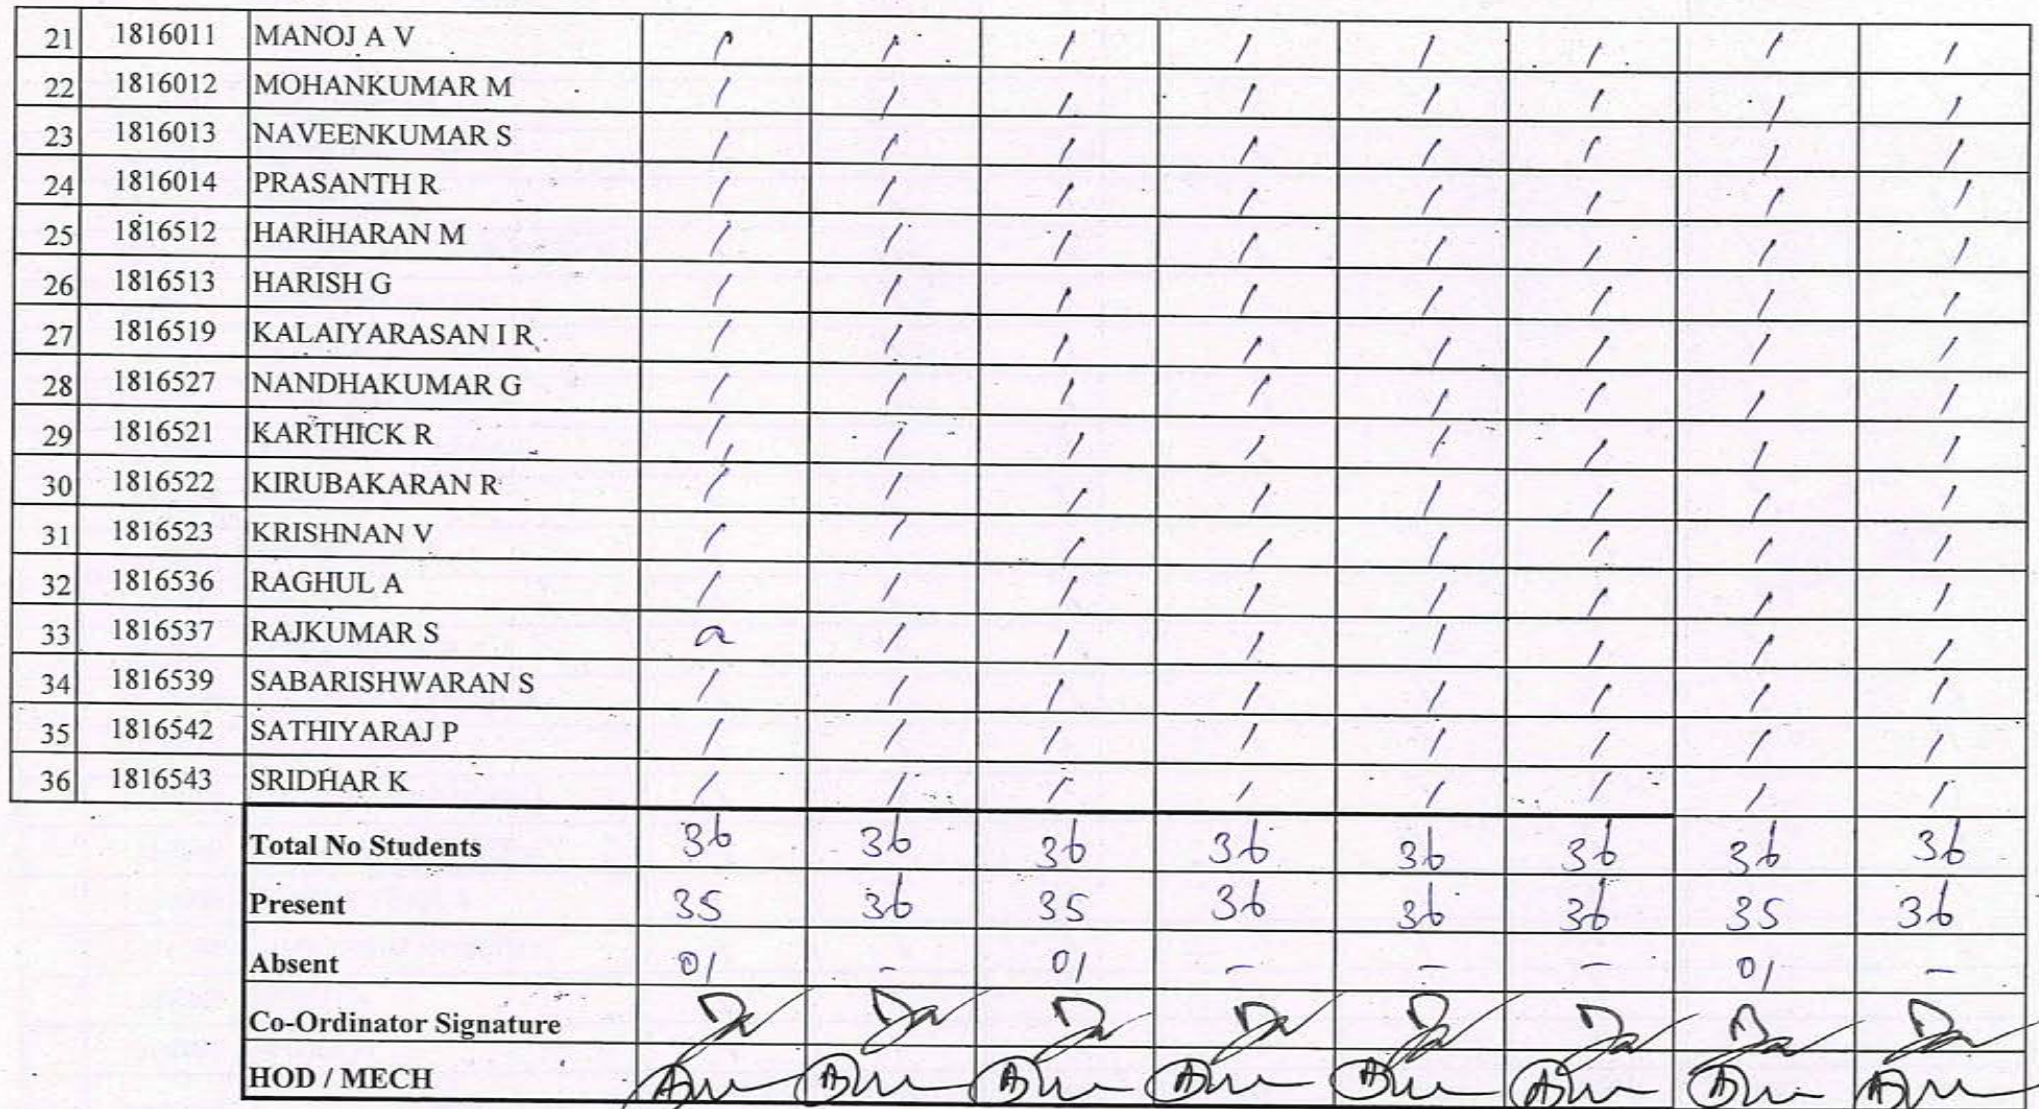 21 1816011 MANOJ A V / / / / / / / /
22 1816012 MOHANKUMAR M / / / / / / / /
23 1816013 NAVEENKUMAR S / / / / / / / /
24 1816014 PRASANTH R / / / / / / / /
25 1816512 HARIHARAN M / / / / / / / /
26 1816513 HARISH G / / / / / / / /
27 1816519 KALAIYARASAN I R / / / / / / / /
28 1816527 NANDHAKUMAR G / / / / / / / /
29 1816521 KARTHICK R / / / / / / / /
30 1816522 KIRUBAKARAN R / / / / / / / /
31 1816523 KRISHNAN V / / / / / / / /
32 1816536 RAGHUL A / / / / / / / /
33 1816537 RAJKUMAR S a / / / / / / /
34 1816539 SABARISHWARAN S / / / / / / / /
35 1816542 SATHIYARAJ P / / / / / / / /
36 1816543 SRIDHAR K / / / / / / / /
Total No Students 36 36 36 36 36 36 36 36
Present 35 36 35 36 36 36 35 36
Absent 01 - 01 - - - 01 -
Co-Ordinator Signature
HOD / MECH